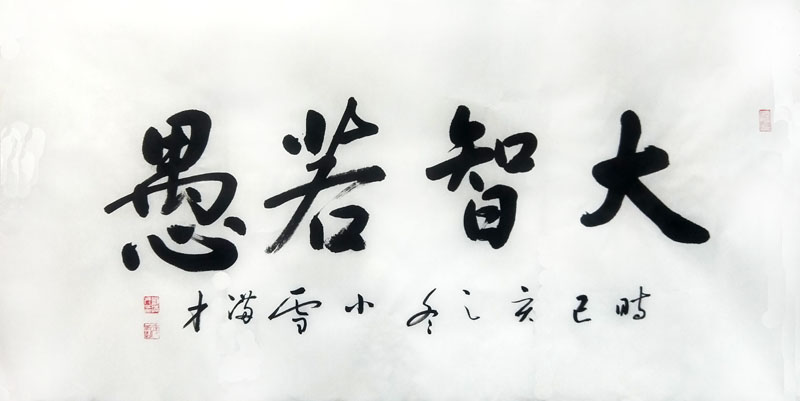 大智若愚
時己亥之冬小雪满才